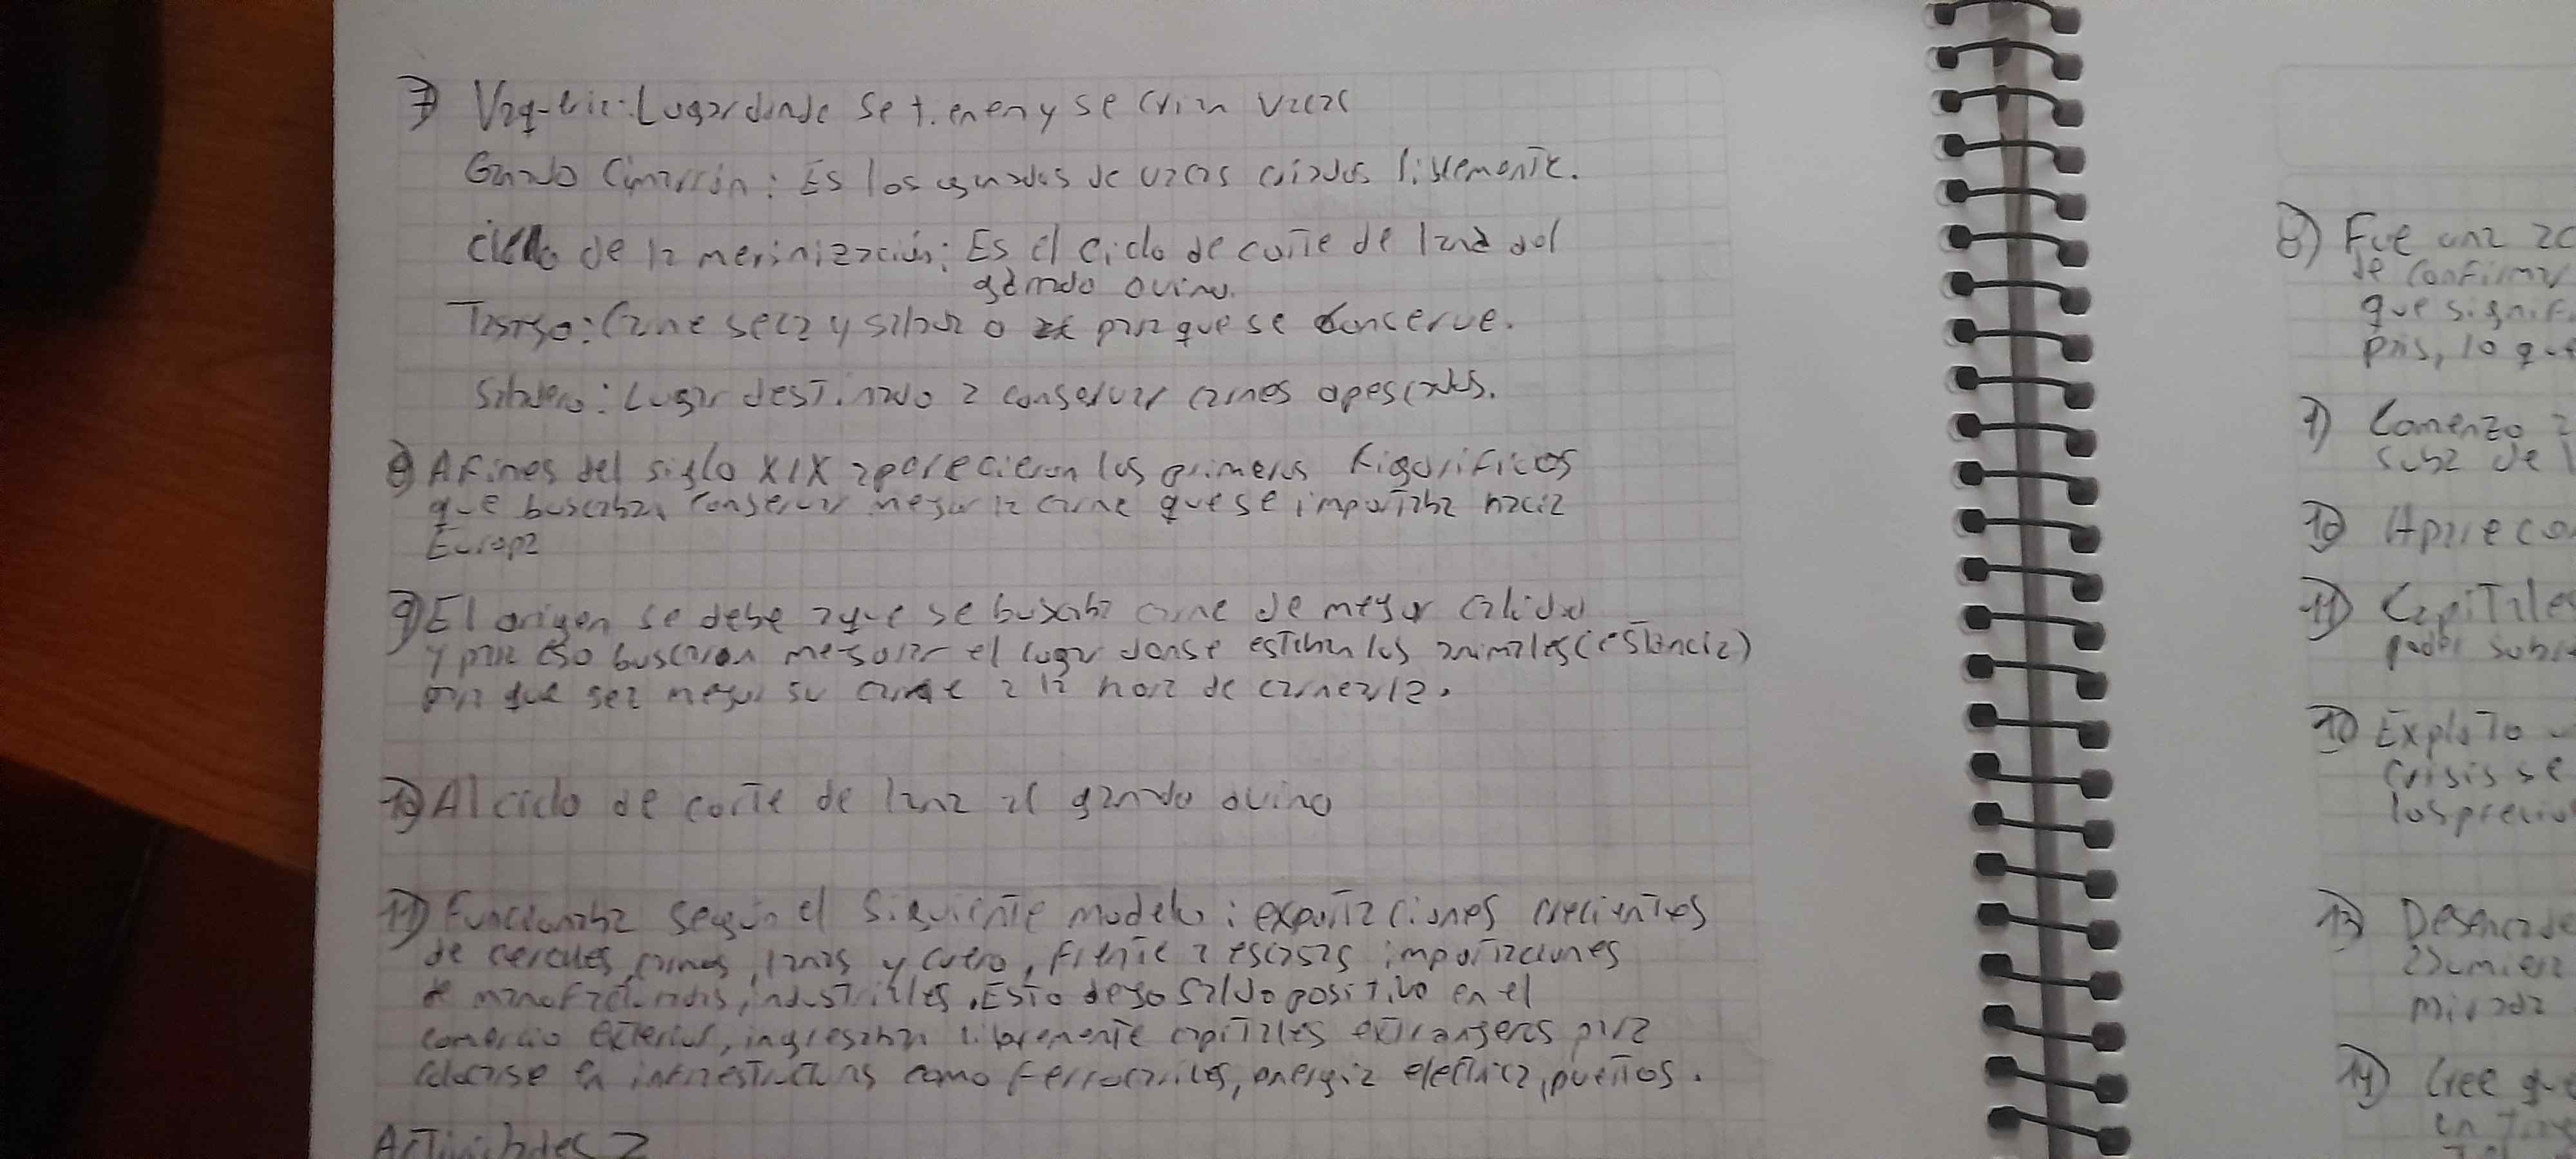 7) Vaquería: Lugar donde se tienen y se crian vacas
Ganado Cimarrón: Es los ganados de vacas criados libremente.
Ciclo de la merinización: Es el ciclo de corte de lana del
ganado ovino.
Tasajo: Carne seca y salada o para que se conserve.
Saladero: Lugar destinado a conservar carnes o pescados.
8) A fines del siglo XIX aparecieron los primeros frigorificos
que buscaban conservar mejor la carne que se importaba hacia
Europa
9) El origen se debe a que se buscaba carne de mejor calidad
y para eso buscaron mejorar el lugar donde estaban los animales (estancia)
para que sea mejor su carne a la hora de carnearla.
10) Al ciclo de corte de lana al ganado ovino
11) Funcionaba según el siguiente modelo: exportaciones crecientes
de cereales, carnes, lanas y cuero, frente a escasas importaciones
de manofacturadas, industriales. Esto dejo saldo positivo en el
comercio exterior, ingresaban libremente capitales extranjeros para
colocarse en infraestructuras como ferrocarriles, energia electrica, puertos.
Actividades 2
8) Fue una
de confirmar
que signif
pais, lo que
9) Comenzo a
suba de
10) Aparecon
11) Capitales
poder sobre
10) Exploto
crisis se
los precios
13) Desencade
asumiera
mirada
14) Cree que
en